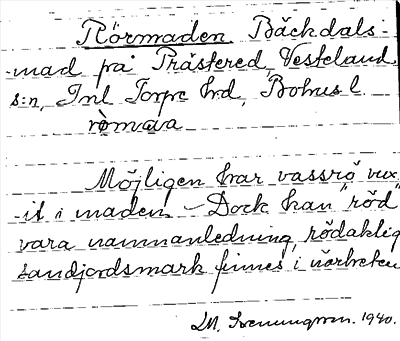 Rörmaden. Bäckdals-
mad på Prästered, Vesteland
s:n, Inl Torpe hd, Bohus l.
Möjligen har vassrö vux-
it i maden. - Dock kan "röd"
vara namnanledning, rödaktig
sandjordsmark finnes i närheten
1940.